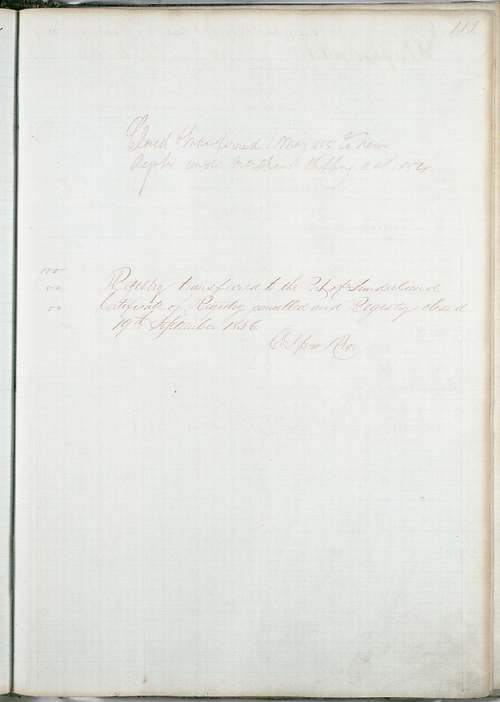 113
Closed & transferred 1 May 155 to new
Registry under Merchant Shipping act 1854
Registry transferred to the Port of Sunderland
Certificate of Registry cancelled and Registry closed
19th September 1856